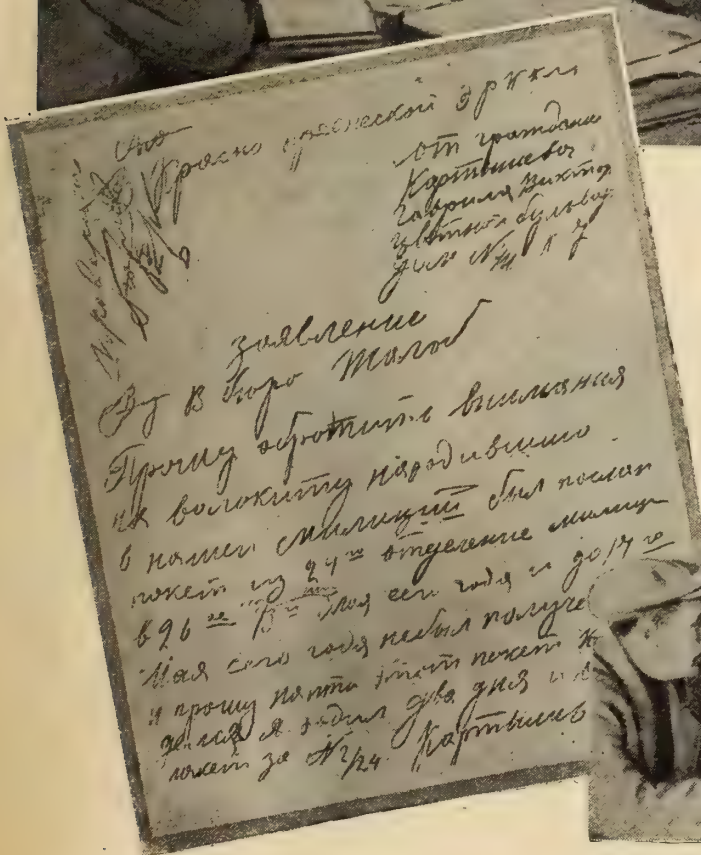 Красно пресненской РКИ
от гражданина
Картышева
Гаврила Виктор
Цветной бульвар
дом №
заявление
в бюро жалоб
Прошу обротить внимания
на волокиту народившию
в нашей милиции был послан
покет из 24го отделение милиции
в 26ое 13го мая сего года и до 17го
Мая сего года небыл получе
и прошу
я ходил два дня и
покет за № /24 Картышев